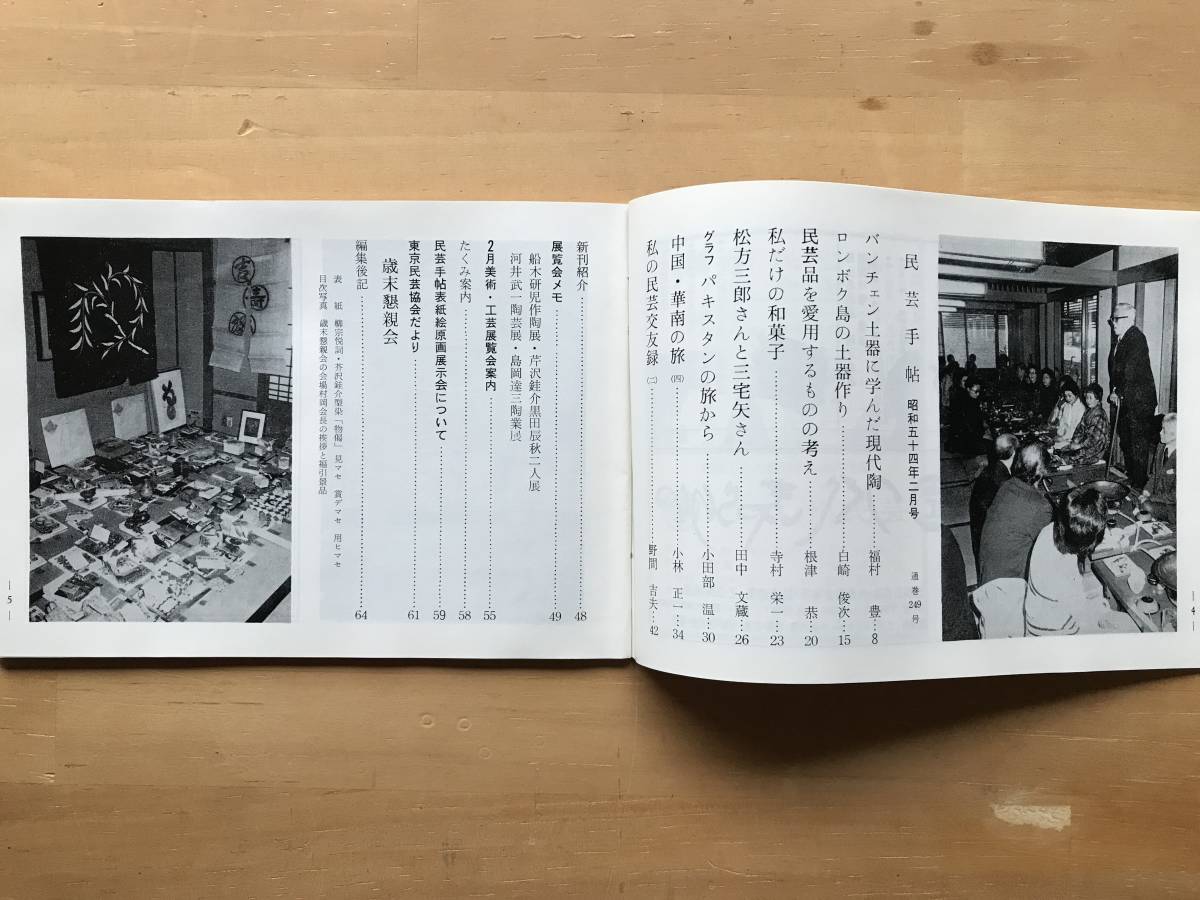 民芸手帖 昭和五十四年二月号 通巻249号
バンチェン土器に学んだ現代陶……福村 豊…8
ロンボク島の土器作り……白崎 俊次…15
民芸品を愛用するものの考え……根津 恭…20
私だけの和菓子……寺村 栄一…23
松方三郎さんと三宅矢さん……田中 文蔵…26
グラフ パキスタンの旅から……小田部 温…30
中国・華南の旅(四)……小林 正一…34
私の民芸交友録(二)……野間 吉夫…42
—4—
新刊紹介……48
展覧会メモ……49
船木研児作陶展・芹沢銈介黒田辰秋二人展
河井武一陶芸展・島岡達三陶業展
2月美術・工芸展覧会案内……55
たくみ案内……58
民芸手帖表紙絵原画展示会について……59
東京民芸協会だより……61
歳末懇親会
編集後記……64
表 紙 柳宗悦詞・芹沢銈介型染「物偈」見マセ 賞デマセ 用ヒマセ
目次写真 歳末懇親会の会場村岡会長の挨拶と福引景品
—5—